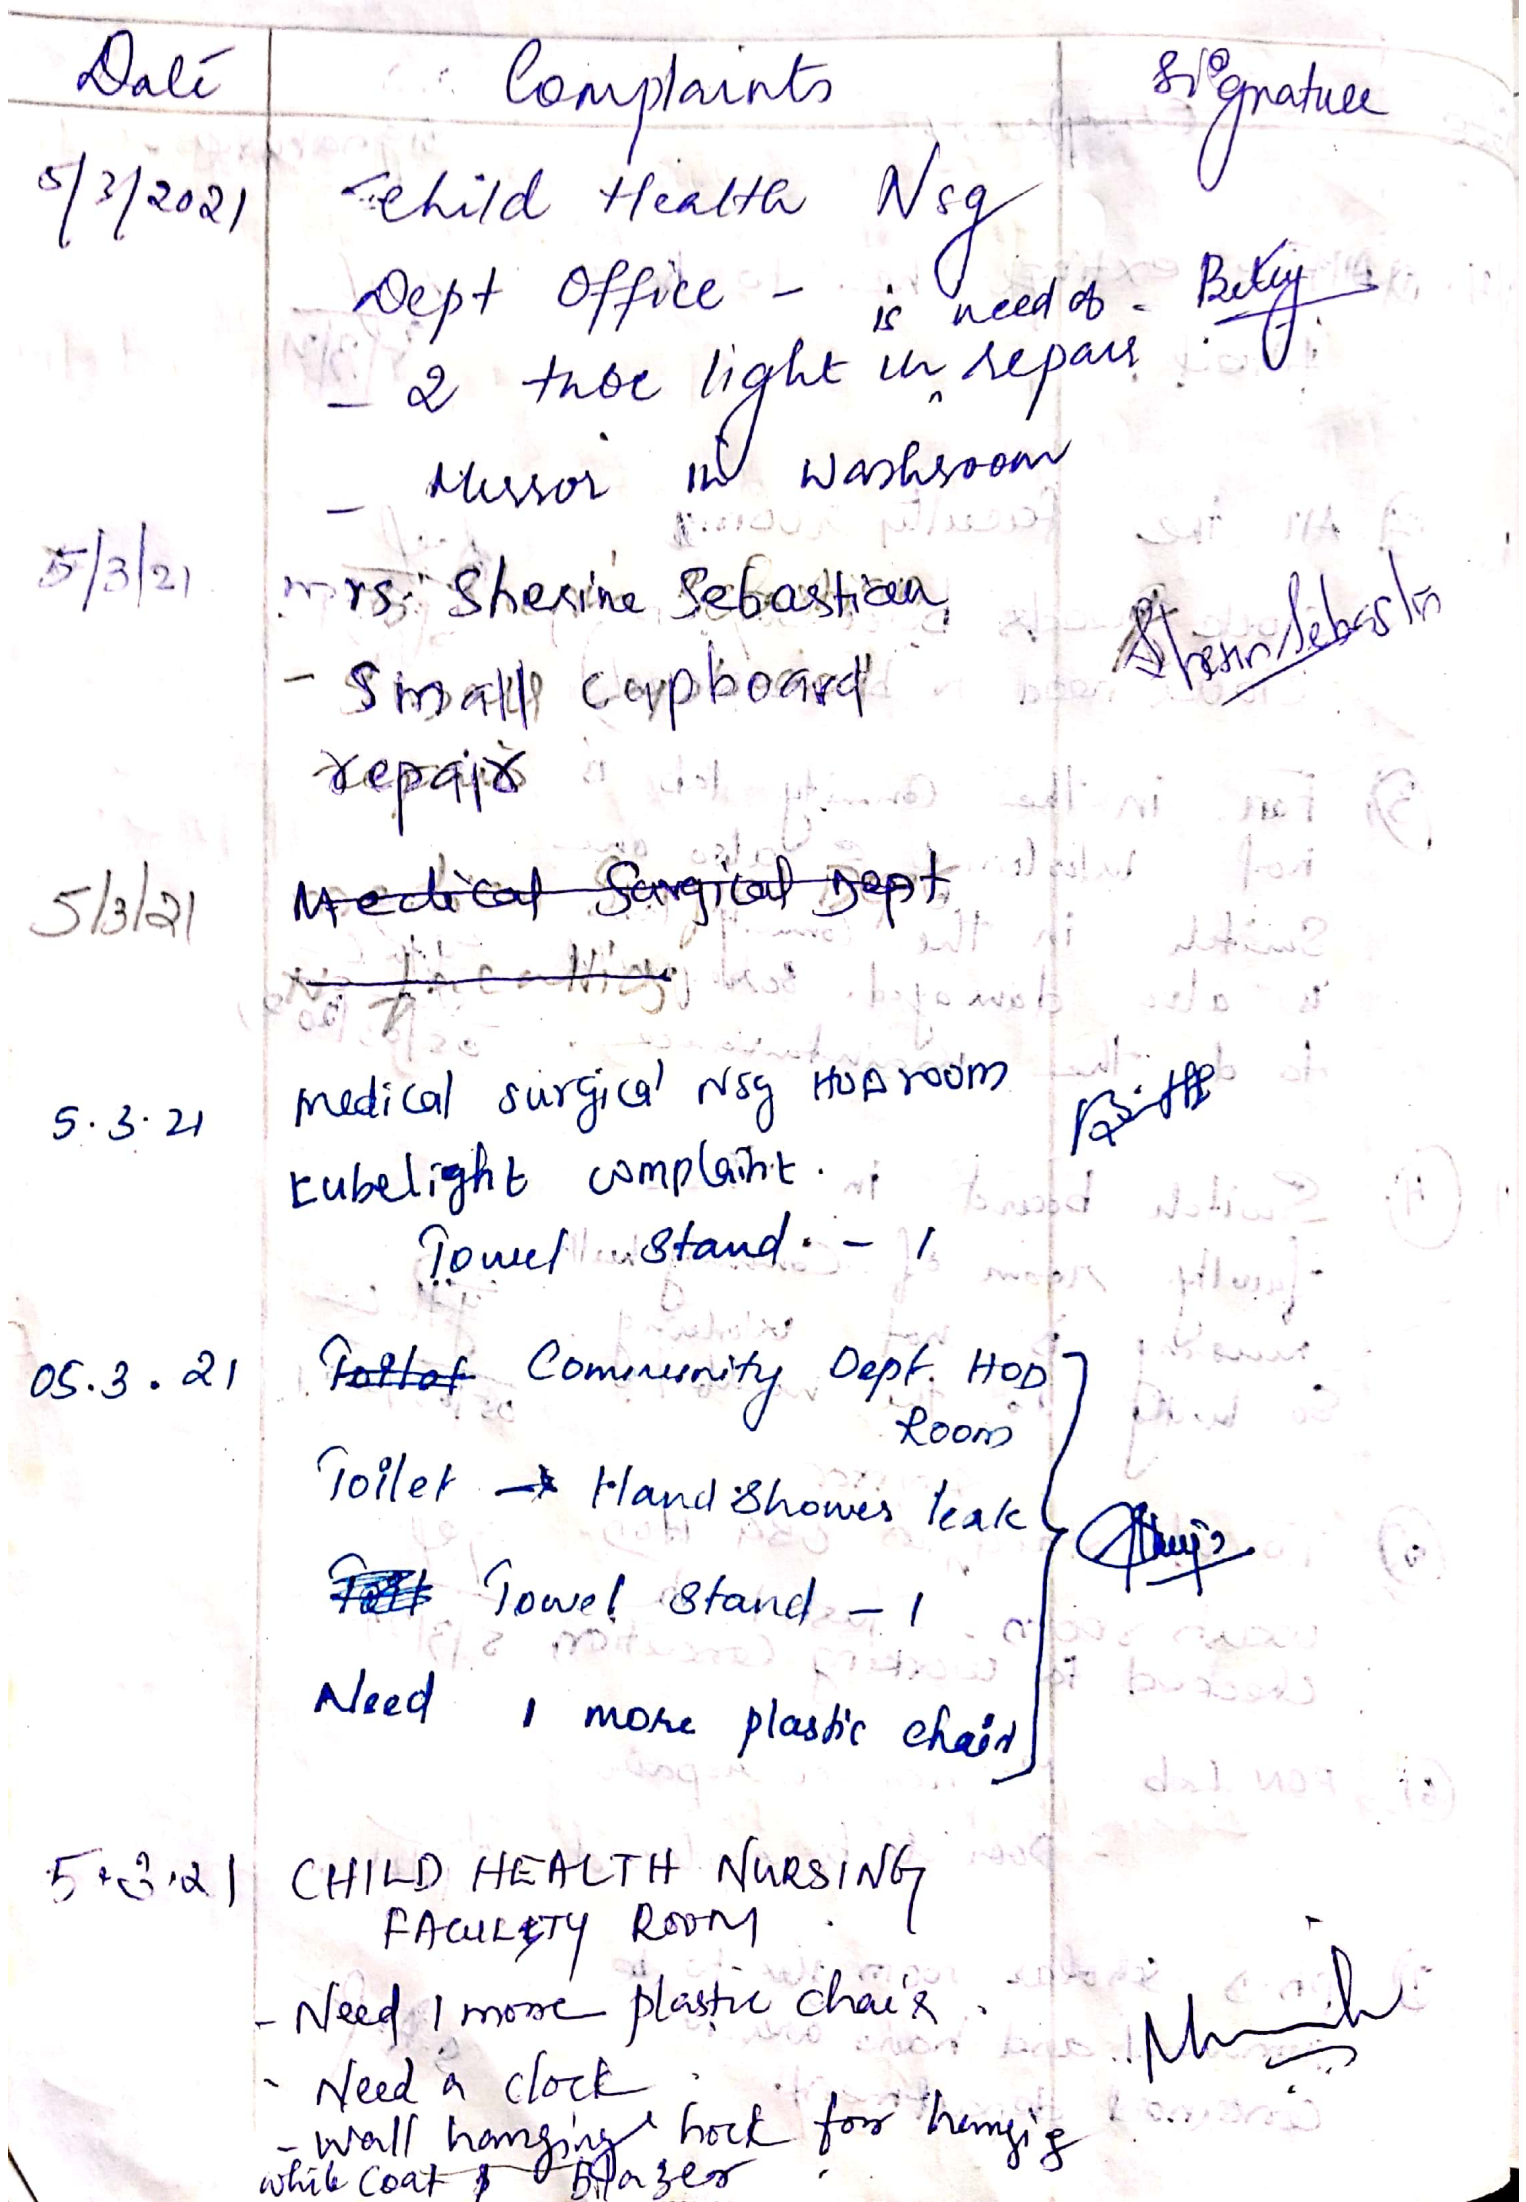 Date Complaints Signature
5/3/2021 Child Health Nsg
Dept Office - is need of
- 2 tube light in repair
- Mirror in washroom
5/3/21 mrs. Sherine Sebastian
- Small cupboard
repair
Sherin Sebastin
5/3/21 Medical Surgical Dept
5.3.21 medical surgical Nsg HOD room
tubelight complaint.
Towel stand. - 1
05.3.21 Toilet Community Dept. HOD
Room
Toilet → Hand Shower leak
Towel stand - 1
Need 1 more plastic chair
5.3.21 CHILD HEALTH NURSING
FACULTY ROOM
- Need 1 more plastic chair.
- Need a clock.
- Wall hanging hock for hangig
white coat & Blazer